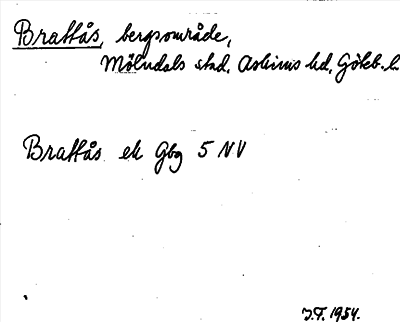 Brattås, bergsområde,
Mölndals stad, Askims hd, Göteb. l.
Brattås ek Gbg 5 NV
J.T. 1954.